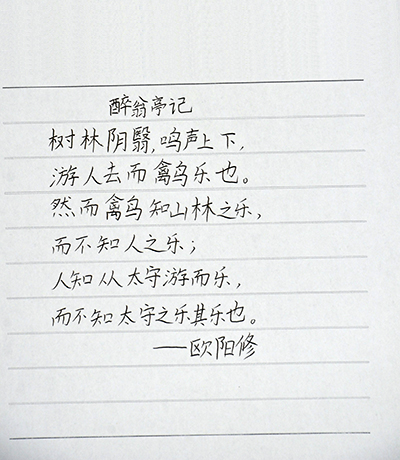 醉翁亭记
树林阴翳,鸣声上下,
游人去而禽鸟乐也。
然而禽鸟知山林之乐,
而不知人之乐;
人知从太守游而乐,
而不知太守之乐其乐也。
——欧阳修